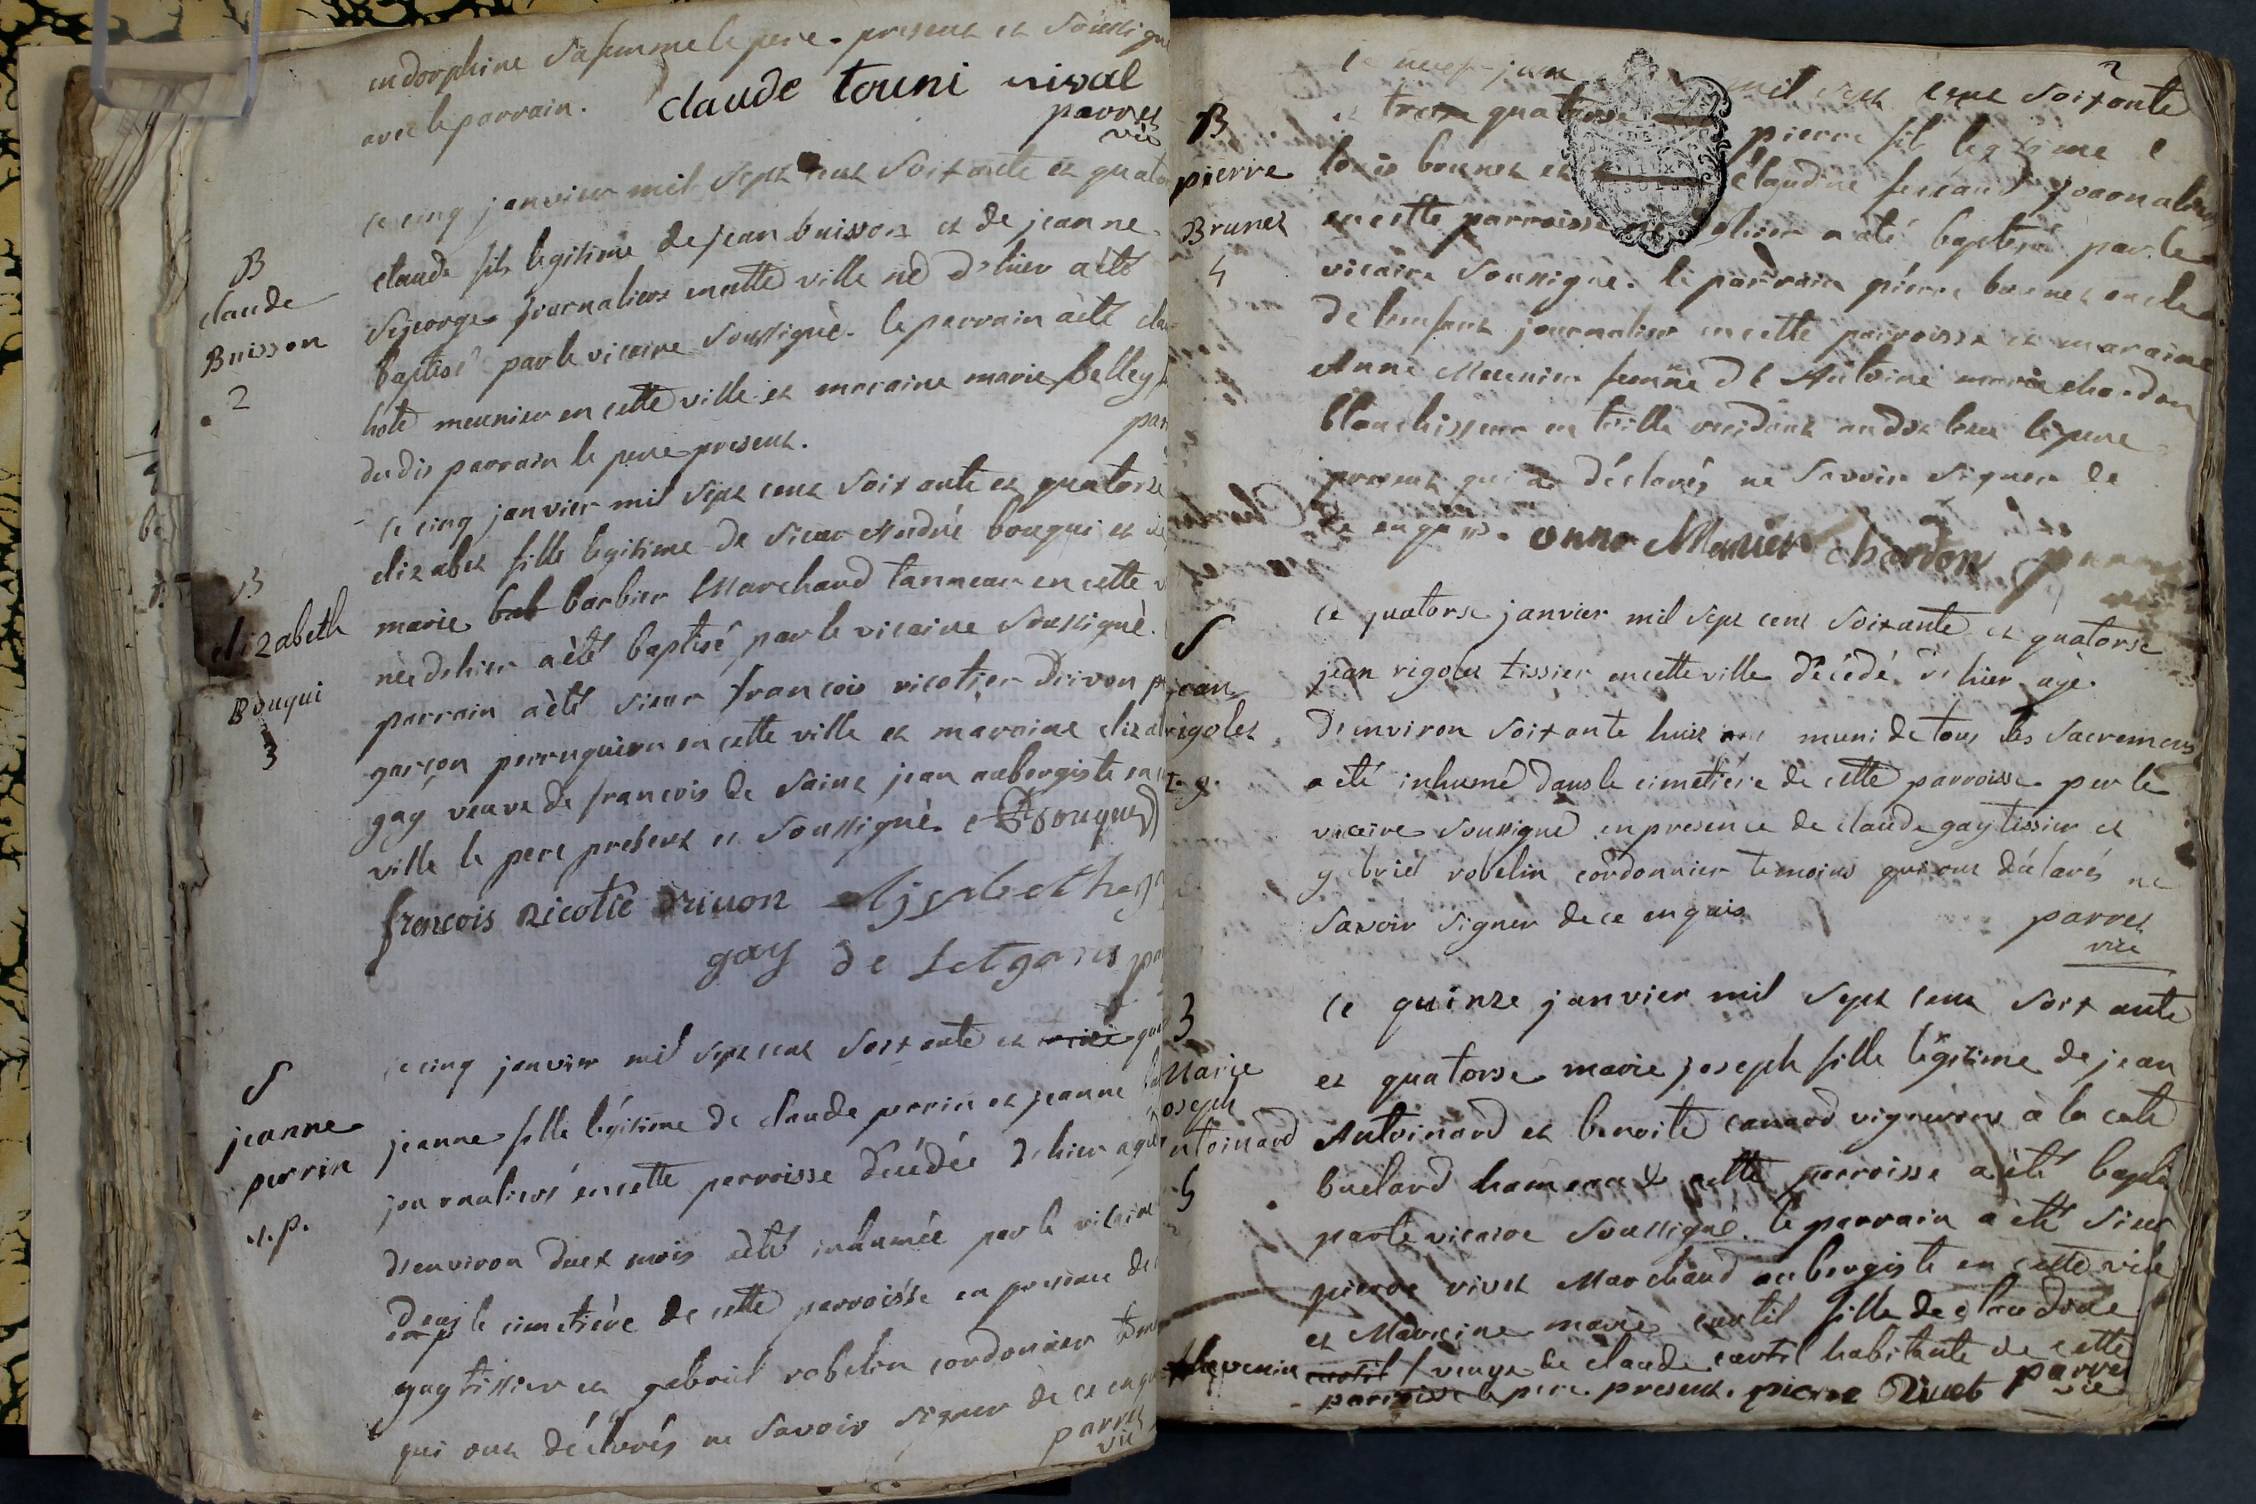 endorphine sa femme le pere present et soussigné
avec le parrain. claude touni rival
parret
vic
B
claude
Buisson
2
ce cinq janvier mil sept cent soixante et quator
claude fils legitime de jean buisson et de jeanne
Sijeorge journaliers en cette ville né d'hier a été
baptisé par le vicaire soussigné. le parrain a été cla
hote meunier en cette ville et marraine marie belley
du dit parrain le pere present.
par
B
elizabeth
Bouqui
3
ce cinq janvier mil sept cent soixante et quatorze
elizabet fille legitime de sieur André bouqui et de
marie bab barbier Marchand tanneur en cette v
née d'hier a été baptisé par le vicaire soussigné.
parrain a été sieur francois ricotier Drivon
garçon perruquier en cette ville et maraine elizab
gay veuve de francois de saint jean aubergiste en
ville le pere present et soussigné. Bouquy
francois Ricotié Drivon Elizabeth
gay de
par
S
jeanne
perrin
s.p.
ce cinq janvier mil sept cent soixante et treize qua
jeanne fille légitime de claude perrin et jeanne
journaliers en cette parroisse décédée d'hier agée
d'environ deux mois a été inhumée par le vicaire
dans le cimetière de cette parroisse en presence de
gay tissier et gabriel robelin cordonnier temo
qui ont déclarés ne savoir signer de ce enqui
parret
vic
2
ce neuf janv mil sept cent soixante
et treze quatorse pierre fils legitime de
B
pierre
Brunet
4
louis brunet et claudine ferrand journaliers
en cette parroisse né d'hier a été baptisé par le
vicaire soussigné. le parrain pierre brunet oncle
de l'enfant journalier en cette parroisse et maraine
Anne Meunier femme de Antoine marie chardon
blanchisseur en toille le pere
present qui a déclarés ne savoir signer de
ce enquis. anne Meunier chardon parret
S
jean
rigolet
ce quatorse janvier mil sept cent soixante et quatorse
jean rigolet tissier en cette ville décédé d'hier agé
d'environ soixante huit ans muni de tous les sacremens
a été inhumé dans le cimetière de cette parroisse par le
vicaire soussigné en presence de claude gay tissier et
gabriel robelin cordonnier temoins qui ont déclarés ne
savoir signer de ce enquis
parret
vic
B
Marie
oseph
ntoinard
5
ce quinze janvier mil sept cent soixante
et quatorse marie joseph fille légitime de jean
Antoinard et benoite canard vignerons à la cote
buelard hameau de cette parroisse a été bapti
par le vicaire soussigné. le parrain a été sieur
pierre rivet Marchand aubergiste en cette ville
et Maraine marie curtil fille de claudine
thevenin curtil / veuve de claude curtil habitante de cette
parroisse le pere present. pierre Rivet parret
vic